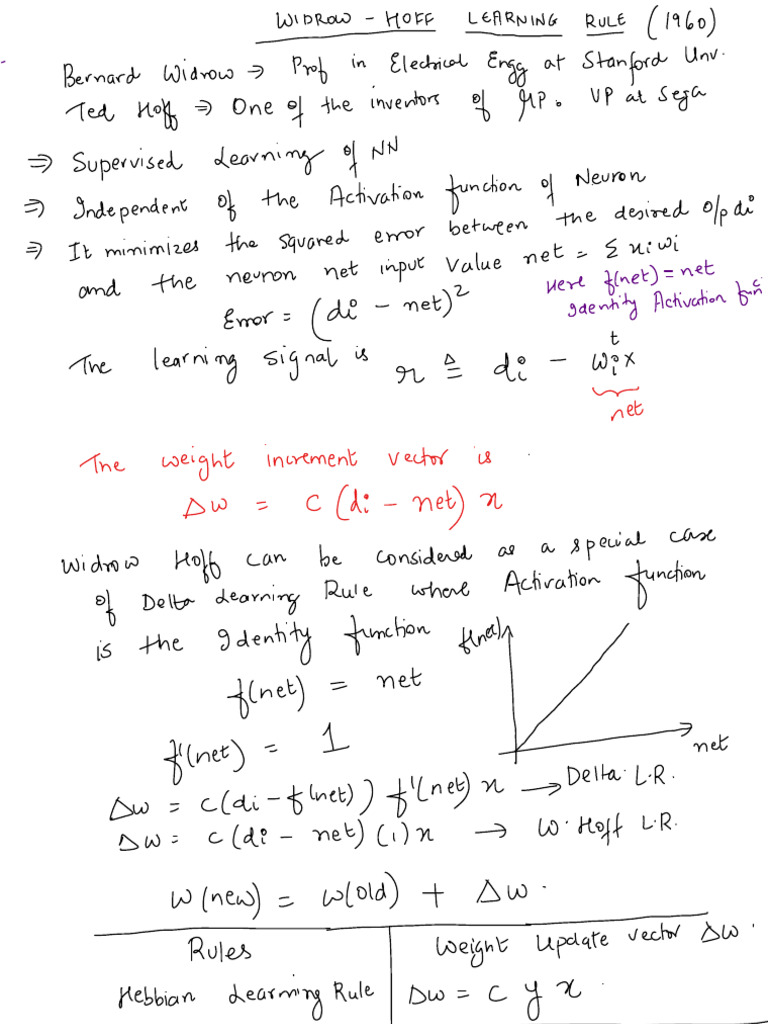 WIDROW - HOFF LEARNING RULE (1960)
Bernard Widrow → Prof in Electrical Engg at Stanford Unv.
Ted Hoff ⇒ One of the inventors of μP. VP at Sega
⇒ Supervised Learning of NN
⇒ Independent of the Activation function of Neuron
⇒ It minimizes the squared error between the desired o/p di
and the neuron net input value net = Σ xiwi
Here f(net) = net
Identity Activation func
Error = (di - net)²
The learning signal is r ≜ di - wiᵗx
net
The weight increment vector is
Δw = c (di - net) x
Widrow Hoff can be considered as a special case
of Delta Learning Rule where Activation function
is the Identity function
f(net)
f(net) = net
f'(net) = 1
net
Δw = c(di - f(net)) f'(net) x → Delta L.R.
Δw = c(di - net) (1) x → W. Hoff L.R.
w(new) = w(old) + Δw.
Rules Weight Update vector Δw.
Hebbian Learning Rule Δw = c y x.